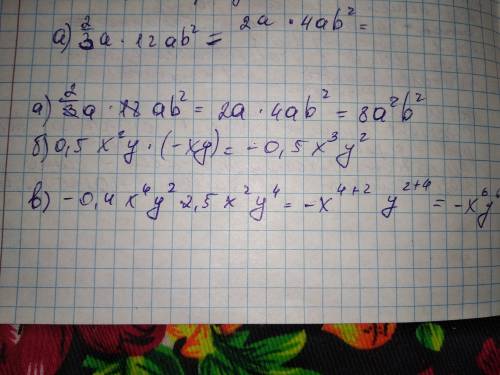 а) 2/3 a · 12 ab² = 2a · 4ab² =
а) 2/3 a · 12 ab² = 2a · 4ab² = 8a²b²
б) 0,5 x²y · (-xy) = -0,5 x³y²
в) -0,4 x⁴y² · 2,5 x²y⁴ = -x⁴⁺² y²⁺⁴ = -x⁶y⁶